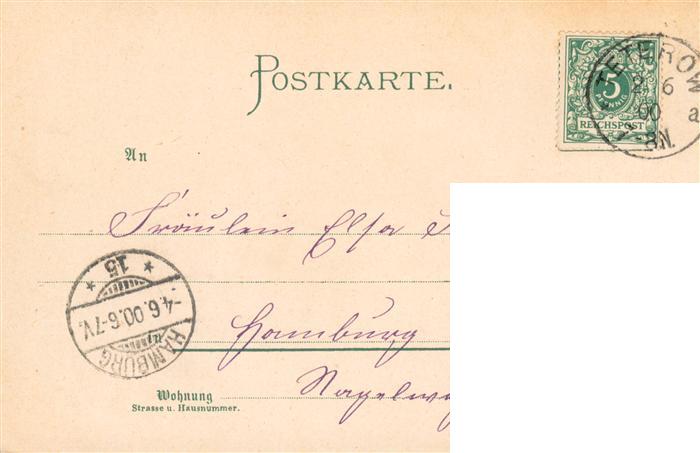 POSTKARTE.
5
PFENNIG
REICHSPOST
TETEROW
2 6
00 a
7-8N.
An
Fräulein Elsa
15
-4.6.00.6-7V.
HAMBURG
in Hamburg
Wohnung
Strasse u. Hausnummer.